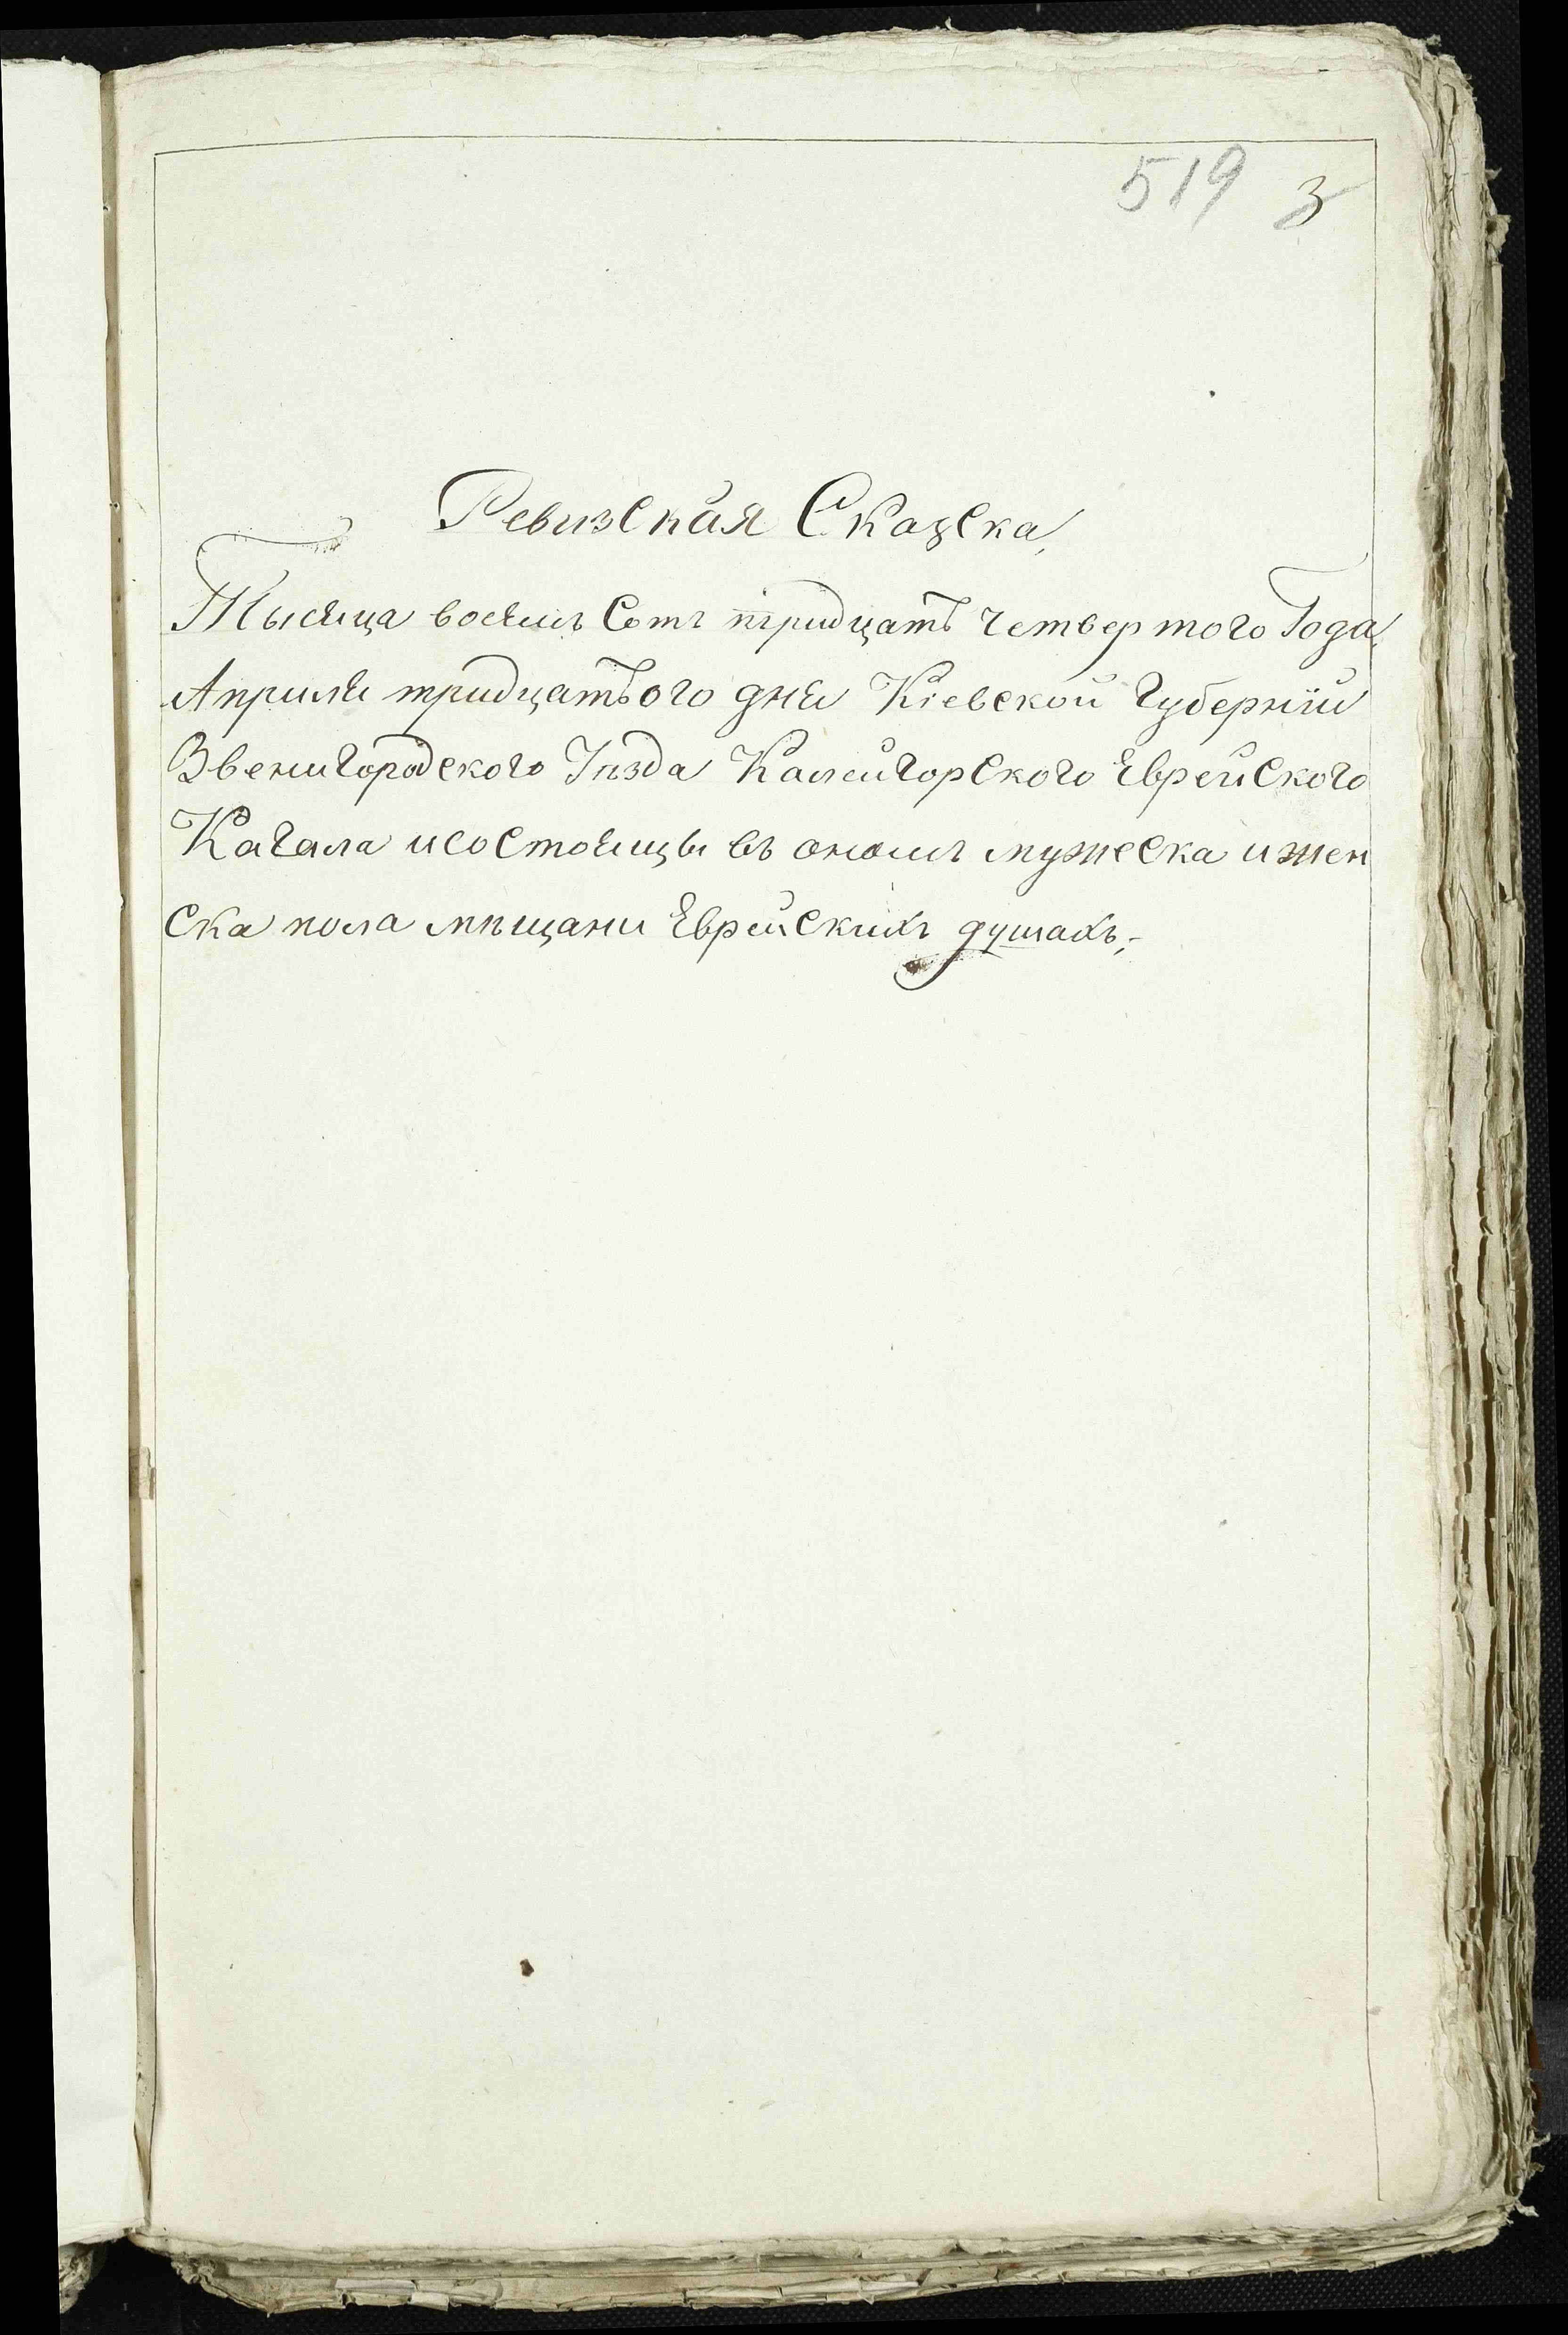 519 3
Ревизская Сказска,
Тысяца восемъ Сотъ тридцать четвертого Года,
Апрыля тридцатього дня Кіевской Губерніи
Звенигородского Уѣзда Калейгорского Еврейского
Кагала исостоящы въ ономъ мужеска ижен
ска пола мѣщани Еврейскихъ душахъ,-